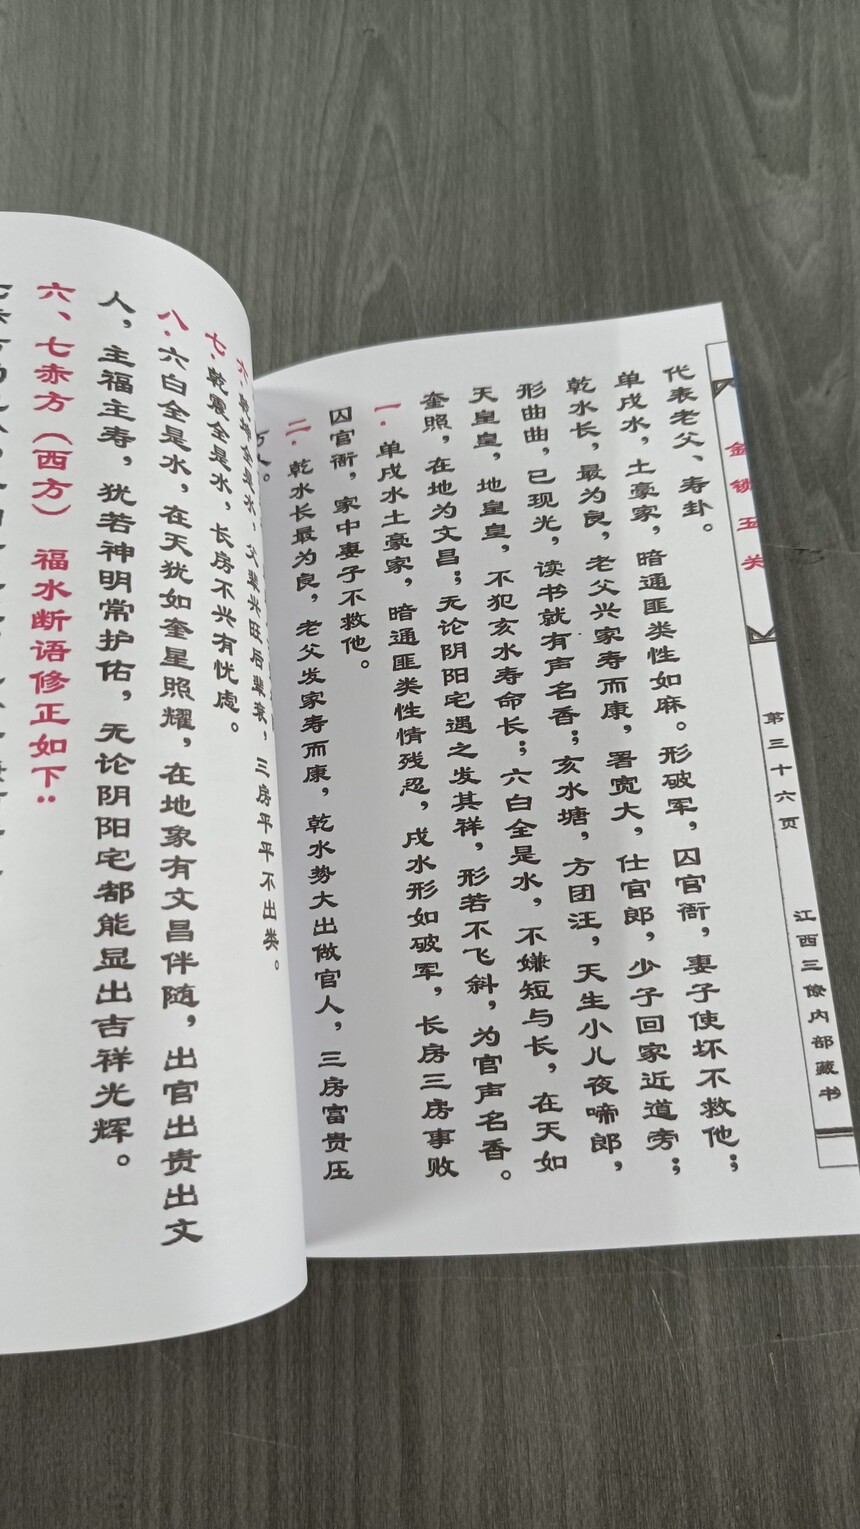 金锁玉关
第三十六页
江西三僚内部藏书
代表老父、寿卦。
单戌水，土豪家，暗通匪类性如麻。形破军，囚官衙，妻子使坏不救他；
乾水长，最为良，老父兴家寿而康，署宽大，仕官郎，少子回家近道旁；
形曲曲，已现光，读书就有声名香；亥水塘，方团汪，天生小儿夜啼郎，
天皇皇，地皇皇，不犯亥水寿命长；六白全是水，不嫌短与长，在天如
奎照，在地为文昌；无论阴阳宅遇之发其祥，形若不飞斜，为官声名香。
一．单戌水土豪家，暗通匪类性情残忍，戌水形如破军，长房三房事败
囚官衙，家中妻子不救他。
二．乾水长最为良，老父发家寿而康，乾水势大出做官人，三房富贵压
万人。
全是水，父辈兴旺后辈衰，三房平平不出类。
七．乾震全是水，长房不兴有忧虑。
八．六白全是水，在天犹如奎星照耀，在地象有文昌伴随，出官出贵出文
人，主福主寿，犹若神明常护佑，无论阴阳宅都能显出吉祥光辉。
六、七赤方（西方）福水断语修正如下：